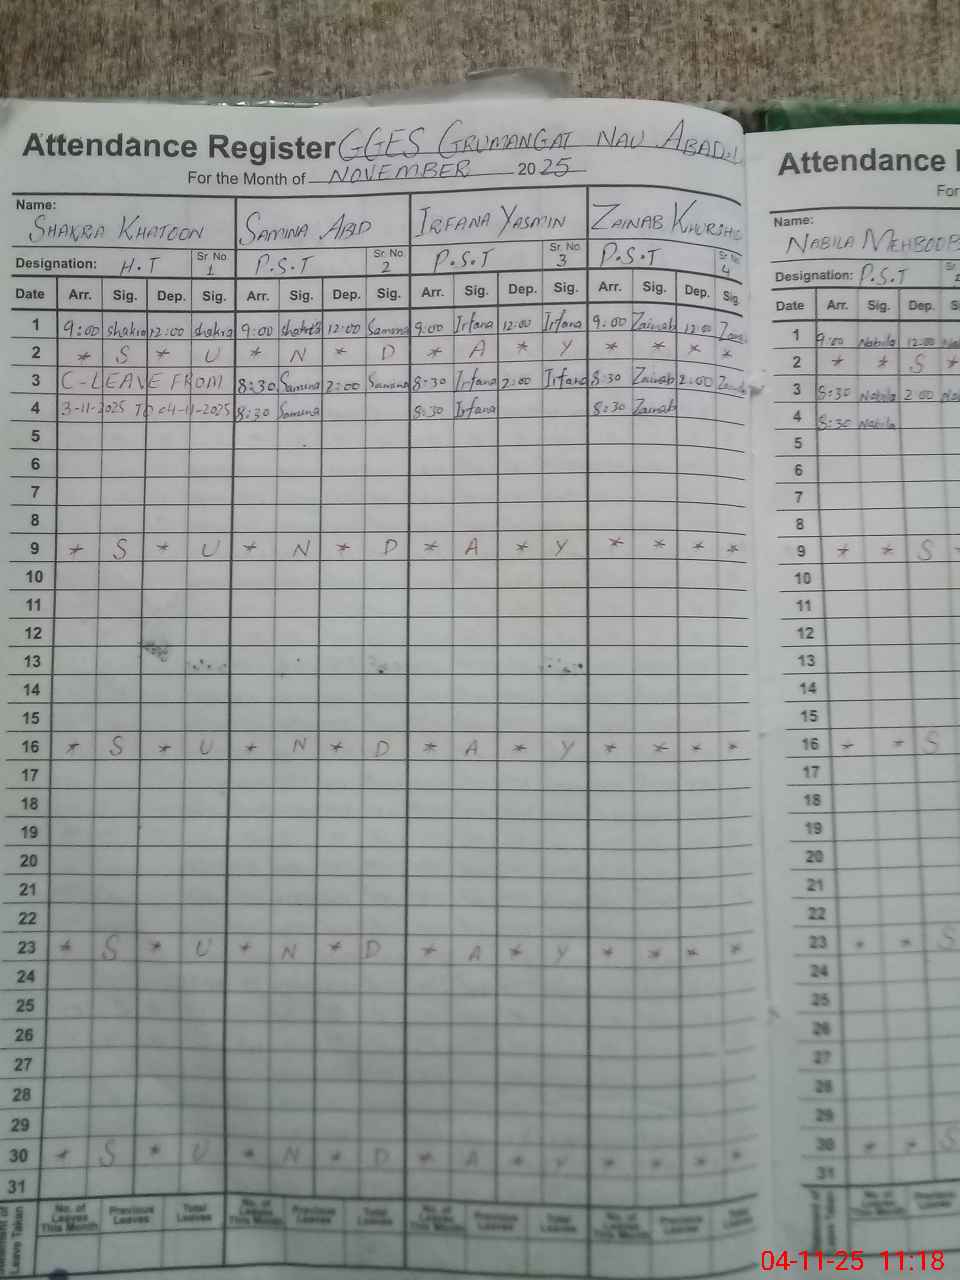 Attendance Register GGES GRUMANGAT NAU ABADI
For the Month of NOVEMBER 2025
Name:
SHAKRA KHATOON SAMINA ABD IRFANA YASMIN ZAINAB KHURSHID
Designation: H.T Sr No. 1 P.S.T Sr No. 2 P.S.T Sr No. 3 P.S.T Sr No. 4
Date Arr. Sig. Dep. Sig. Arr. Sig. Dep. Sig. Arr. Sig. Dep. Sig. Arr. Sig. Dep. Sig.
1 9:00 shakra 12:00 shakra 9:00 12:00 Samina 9:00 Irfana 12:00 Irfana 9:00 Zainab 12:00
2 * S * U * N * D * A * Y * * * *
3 C-LEAVE FROM 8:30 Samina 2:00 Samina 8:30 Irfana 2:00 Irfana 8:30 Zainab 2:00
4 3-11-2025 TO 04-11-2025 8:30 Samina 8:30 Irfana 8:30 Zainab
5
6
7
8
9 * S * U * N * D * A * Y * * * *
10
11
12
13
14
15
16 * S * U * N * D * A * Y * * * *
17
18
19
20
21
22
23 * S * U * N * D * A * Y * * * *
24
25
26
27
28
29
30 * S * U * N * D * A * Y * * * *
31
Leave Taken No. of Leaves This Month Previous Leaves Total Leaves No. of Leaves This Month Previous Leaves Total Leaves No. of Leaves This Month Previous Leaves Total Leaves No. of Leaves This Month Previous Leaves Total Leaves
Attendance
For
Name:
NABILA MEHBOOB
Designation: P.S.T
Date Arr. Sig. Dep. S
1 9:00 Nabila 12:00
2 * * S *
3 8:30 Nabila 2:00
4 8:30 Nabila
5
6
7
8
9 * * S
10
11
12
13
14
15
16 * * S
17
18
19
20
21
22
23 * * S
24
25
26
27
28
29
30 * * S
31
04-11-25 11:18